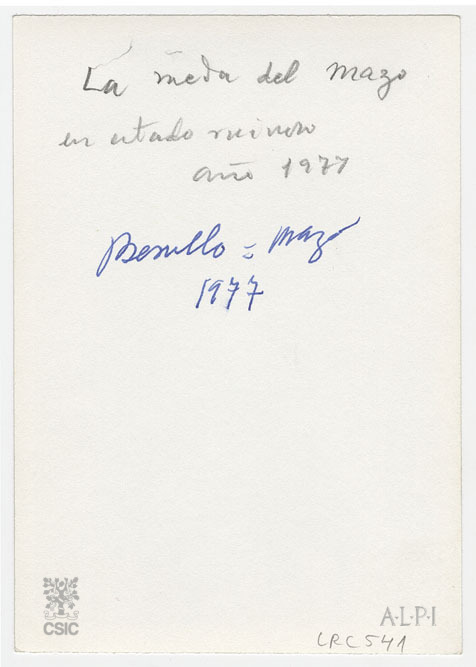 La rueda del mazo
en estado ruinoso
año 1977
Besullo = mazo
1977
CSIC
A·L·P·I
LRC541